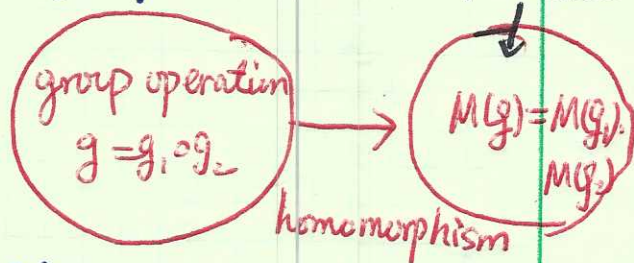 group operation
g = g₁∘g₂
M(g) = M(g₁)·
M(g₂)
homomorphism